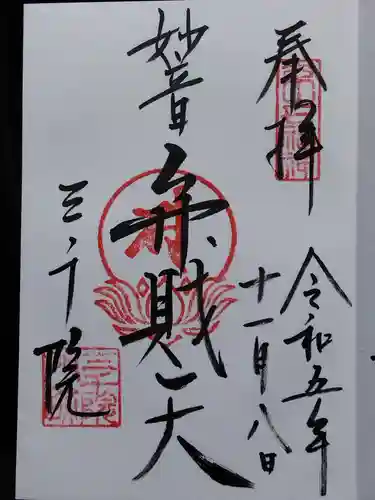 奉拝
令和五年
十一月八日
妙音
弁財天
三千院